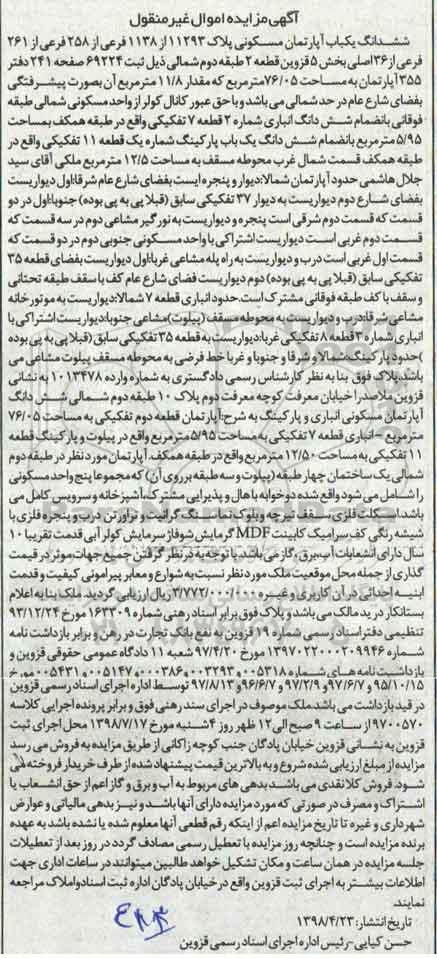 آگهی مزایده اموال غیر منقول
ششدانگ یکباب آپارتمان مسکونی پلاک ۱۱۲۹۳ از ۱۱۳۸ فرعی از ۲۵۸ فرعی از ۲۶۱
فرعی از ۳۶ اصلی بخش ۵ قزوین قطعه ۲ طبقه دوم شمالی ذیل ثبت ۶۹۲۲۴ صفحه ۲۴۱ دفتر
۳۵۵ آپارتمان به مساحت ۷۶/۰۵ مترمربع که مقدار ۱۱/۸ مترمربع آن بصورت پیشرفتگی
بفضای شارع عام در حد شمالی می باشد و با حق عبور کانال کولر از واحد مسکونی شمالی طبقه
فوقانی بانضمام شش دانگ انباری شماره ۲ قطعه ۷ تفکیکی واقع در طبقه همکف بمساحت
۵/۹۵ مترمربع بانضمام شش دانگ یک باب پارکینگ شماره یک قطعه ۱۱ تفکیکی واقع در
طبقه همکف قسمت شمال غرب محوطه مسقف به مساحت ۱۲/۵ مترمربع ملکی آقای سید
جلال هاشمی حدود آپارتمان شمالا: دیوار و پنجره ایست بفضای شارع عام شرقا: اول دیواریست
بفضای شارع دوم دیواریست به دیوار ۳۷ تفکیکی سابق (قبلا پی به پی بوده) جنوبا: اول در دو
قسمت که قسمت دوم شرقی است پنجره و دیواریست به نورگیر مشاعی دوم در سه قسمت که
قسمت دوم غربی است دیواریست اشتراکی با واحد مسکونی جنوبی دوم در دو قسمت که
قسمت اول غربی است درب و دیواریست به راه پله مشاعی غربا: اول دیواریست بفضای قطعه ۳۵
تفکیکی سابق (قبلا پی به پی بوده) دوم دیواریست فضای شارع عام کف با سقف طبقه تحتانی
و سقف با کف طبقه فوقانی مشترک است. حدود انباری قطعه ۷ شمالا: دیواریست به موتورخانه
مشاعی شرقا: درب و دیواریست به محوطه مسقف (پیلوت) مشاعی جنوبا: دیواریست اشتراکی با
انباری شماره ۳ قطعه ۸ تفکیکی غربا: دیواریست به قطعه ۳۵ تفکیکی سابق (قبلا پی به پی بوده
) حدود پارکینگ: شمالا و شرقا و جنوبا و غربا خط فرضی به محوطه مسقف پیلوت مشاعی می
باشد. پلاک فوق بنا به نظر کارشناس رسمی دادگستری به شماره وارده ۱۰۱۳۴۷۸ به نشانی
قزوین ملاصدرا خیابان معرفت کوچه معرفت دوم پلاک ۱۰ طبقه دوم شمالی شش دانگ
آپارتمان مسکونی انباری و پارکینگ به شرح: آپارتمان قطعه دوم تفکیکی به مساحت ۷۶/۰۵
مترمربع - انباری قطعه ۷ تفکیکی به مساحت ۵/۹۵ مترمربع واقع در پیلوت و پارکینگ قطعه
۱۱ تفکیکی به مساحت ۱۲/۵۰ مترمربع واقع در طبقه همکف. آپارتمان مورد نظر در طبقه دوم
شمالی یک ساختمان چهار طبقه (پیلوت و سه طبقه بر روی آن) که مجموعا پنج واحد مسکونی
را شامل می شود واقع شده دو خوابه با هال و پذیرایی مشترک، آشپزخانه و سرویس کامل می
باشد. اسکلت فلزی سقف تیرچه و بلوک نما سنگ گرانیت و تراورتن درب و پنجره فلزی با
شیشه رنگی کف سرامیک کابینت MDF گرمایش شوفاژ سرمایش کولر آبی قدمت تقریبا ۱۰
سال دارای انشعابات آب، برق، گاز می باشد. با توجه به در نظر گرفتن جمیع جهات موثر در قیمت
گذاری از جمله محل موقعیت ملک مورد نظر نسبت به شوارع و معابر پیرامونی کیفیت و قدمت
ابنیه احداثی در آن کاربری و غیره ۳/۷۷۲/۰۰۰/۰۰۰ ریال ارزیابی گردید. ملک بنا به اعلام
بستانکار در ید مالک می باشد و پلاک فوق برابر اسناد رهنی شماره ۱۶۳۳۰۹ مورخ ۹۳/۱۲/۲۴
تنظیمی دفتر اسناد رسمی شماره ۱۹ قزوین به نفع بانک تجارت در رهن و برابر بازداشت نامه
شماره ۱۳۹۷۰۲۲۰۰۰۲۰۹۹۴۶ مورخ ۹۷/۴/۲۰ شعبه ۱۱ دادگاه عمومی حقوقی قزوین و
بازداشت نامه های شماره ۰۰۵۳۱۸ و ۰۰۳۲۹۳ و ۰۰۰۳۸۶ و ۰۰۵۱۴۷ و ۰۰۵۴۳۱ مورخ
۹۵/۱۰/۱۵ و ۹۷/۶/۷ و ۹۷/۲/۹ و ۹۶/۶/۷ و ۹۷/۸/۱۳ توسط اداره اجرای اسناد رسمی قزوین
در قید بازداشت می باشد. ملک موصوف در اجرای سند رهنی فوق و برابر پرونده اجرایی کلاسه
۹۷۰۰۵۷۰ از ساعت ۹ صبح الی ۱۲ ظهر روز ۴ شنبه مورخ ۱۳۹۸/۷/۱۷ محل اجرای ثبت
قزوین به نشانی قزوین خیابان پادگان جنب کوچه زاکانی از طریق مزایده به فروش می رسد
مزایده از مبلغ ارزیابی شده شروع و به بالاترین قیمت پیشنهاد شده از طرف خریدار فروخته می
شود. فروش کلا نقدی می باشد بدهی های مربوط به آب و برق و گاز اعم از حق انشعاب یا
اشتراک و مصرف در صورتی که مورد مزایده دارای آنها باشد و نیز بدهی مالیاتی و عوارض
شهرداری و غیره تا تاریخ مزایده اعم از اینکه رقم قطعی آنها معلوم شده یا نشده باشد به عهده
برنده مزایده است و چنانچه روز مزایده با تعطیل رسمی مصادف گردد در روز بعد از تعطیلات
جلسه مزایده در همان ساعت و مکان تشکیل خواهد شد طالبین میتوانند در ساعات اداری جهت
اطلاعات بیشتر به اجرای ثبت قزوین واقع در خیابان پادگان اداره ثبت اسناد و املاک مراجعه
نمایند.
تاریخ انتشار: ۱۳۹۸/۴/۲۳
حسن کیایی-رئیس اداره اجرای اسناد رسمی قزوین